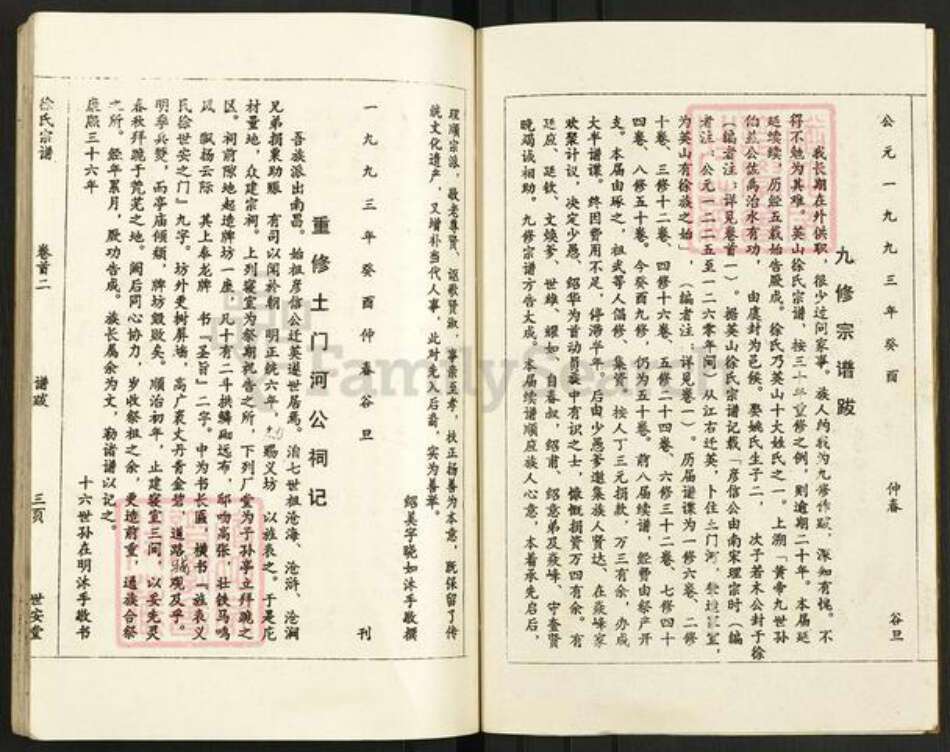 公元一九九三年癸酉 仲春 谷旦
九修宗谱跋
我长期在外供职，很少过问家事。族人约我为九修作跋，深知有愧。不
得不勉为其难。英山徐氏宗谱，按三十年重修之例，则逾期二十年。本届延
延续续，历经五载始告厥成。徐氏乃英山十大姓氏之一。上溯「黄帝九世孙
伯益公佐禹治水有功，由虞封为邑侯。娶姚氏生子二，次子若木公封于徐
（编者注：详见卷首一）。据英山徐氏宗谱记载「彦信公由南宋理宗时（编
者注：公元一二二五至一二六零年间）从江右迁英，卜住土门河，
为英山有徐族之始」，（编者注：详见卷一）。历届谱谍为一修六卷、二修
十卷、三修十二卷、四修十六卷、五修二十四卷、六修三十二卷、七修四十
四卷、八修五十卷。今癸酉九修，仍为五十卷。前八届续谱，经费由祭产开
支。本届由琢之、祖武等人倡修，集资，按人丁三元捐款，万三有余，办成
大半谱谍。终因费用不足，停滞半年。后由少愚爹邀集族人贤达、在焱峰家
欢聚计议，决定少愚、绍华为首动员族中有识之士，慷慨捐资万四有余。有
延应、廷钦、文焕爹、世雄、耀如、自春叔，绍甫、绍意弟及焱峰、守奎贤
晚竭诚相助。九修宗谱方告大成。本届续谱顺应族人心意，本着承先启后，
理顺宗派，敬老尊贤、讴歌贤淑，事亲至孝，扶正扬善为本意，既保留了传
统文化遗产，又增补当代人事，此对先人后裔，实为善举。
绍美字晓如沐手敬撰
一九九三年癸酉仲春谷旦 刊
重修土门河公祠记
吾族派出南昌。始祖彦信公迁英遂世居焉。洎七世祖沧海、沧浒、沧澜
兄弟捐粟助赈 有司以闻于朝 明正统六年，赐义坊 以旌表之。于是庀
材量地，众建宗祠。上列寝室为祭期祝告之所，下列厂堂为子孙亭立拜跪之
区。祠前隙地起造牌坊一座，凡十有二斗拱鳞砌远布，鸱吻高张，壮铁马鸣
风 飘扬云际 其上奉龙牌 书「圣旨」二字。中为书长匾，横书「旌表义
民徐世安之门」九字。坊外更树屏墙，高广袤丈丹青金碧，道路观及乎。
明季兵燹，而亭庙倾颓，牌坊毁败矣。顺治初年，止建寝室三间，以妥先灵
春秋拜跪于荒芜之地。阙后同心协力，岁收祭祖之余，更造前重 通族合祭
之所。经年累月，厥功告成。族长属余为文，勒诸谱以记之。
十六世孙在明沐手敬书
康熙三十六年
徐氏宗谱 卷首二 谱跋 三页 世安堂
FamilySearch